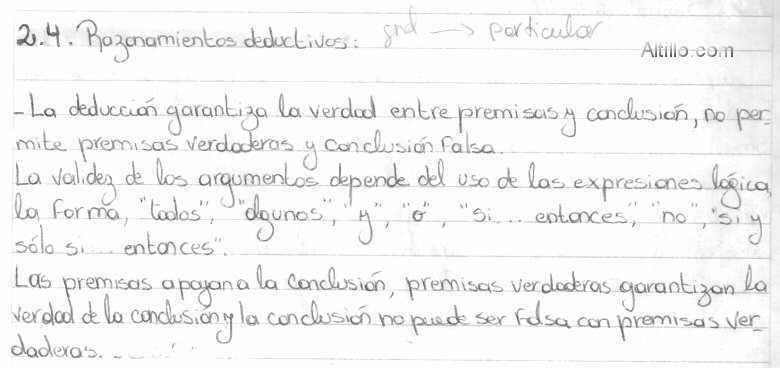 2.4. Razonamientos deductivos: gral → particular
Altillo.com
- La deducción garantiza la verdad entre premisas y conclusión, no per-
mite premisas verdaderas y conclusión falsa.
La validez de los argumentos depende del uso de las expresiones lógica
la forma, "todos", "algunos", "y", "o", "si... entonces", "no", "si y
sólo si... entonces".
Las premisas apoyan a la conclusión, premisas verdaderas garantizan la
verdad de la conclusión y la conclusión no puede ser falsa con premisas ver-
daderas.